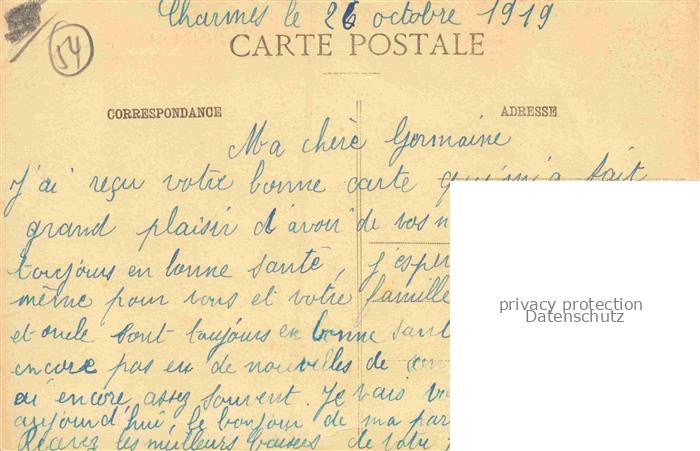 Charmes le 26 octobre 1919
54
CARTE POSTALE
CORRESPONDANCE
ADRESSE
Ma chère Germaine
J'ai reçu votre bonne carte qui m'a fait
grand plaisir d'avoir de vos n
toujours en bonne santé, j'esper
même pour vous et votre famille
et oncle sont toujours en bonne sant
encore pas eu de nouvelles de
ai encore assez souvent. Je vais
aujourd'hui, le bonjour de ma par
Recevez les meilleurs baisers de votre
privacy protection
Datenschutz